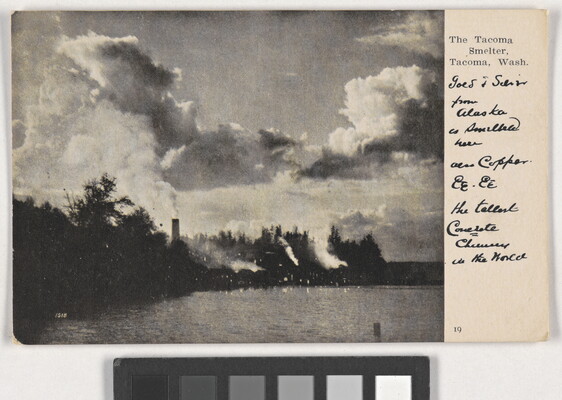 The Tacoma
Smelter,
Tacoma, Wash.
Gold & Silver
from
Alaska
is smelted
here
also Copper.
Etc. Etc
the tallest
Concrete
Chimney
in the World
1218
19